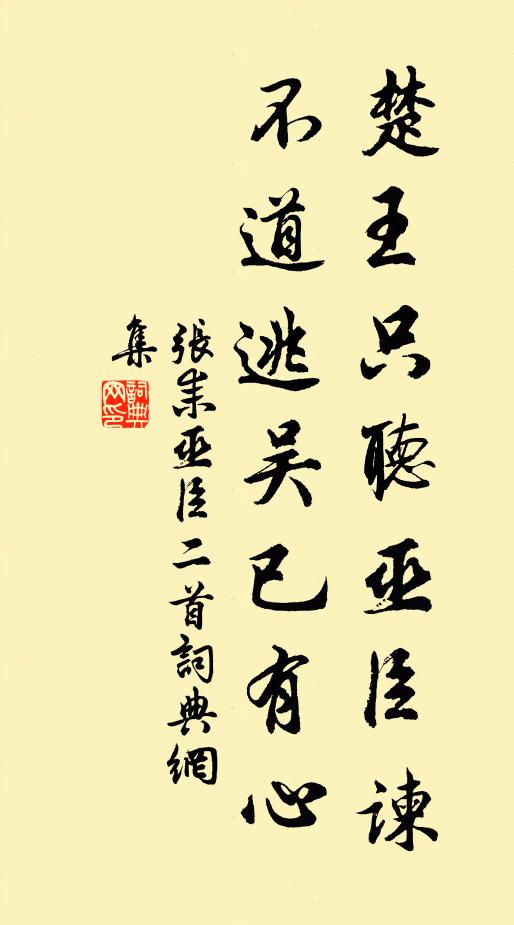 楚王只聽巫臣諫
不道逃吴已有心
張耒巫臣二首詞典網
集
詞典网印